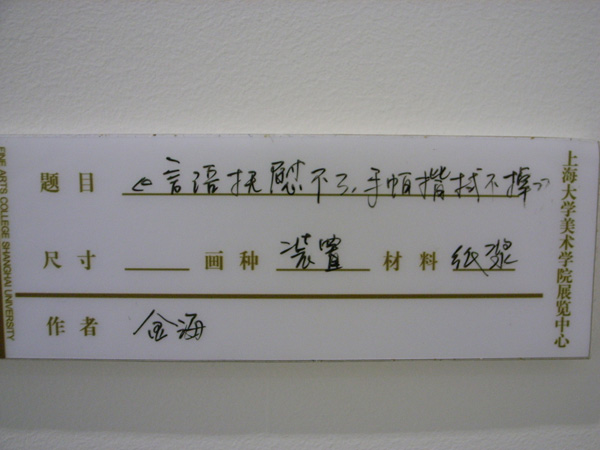 题目 《言語抚慰不了,手帕揩拭不掉》
尺寸 画种 装置 材料 纸浆
作者 金海
上海大学美术学院展览中心
FINE ARTS COLLEGE SHANGHAI UNIVERSITY